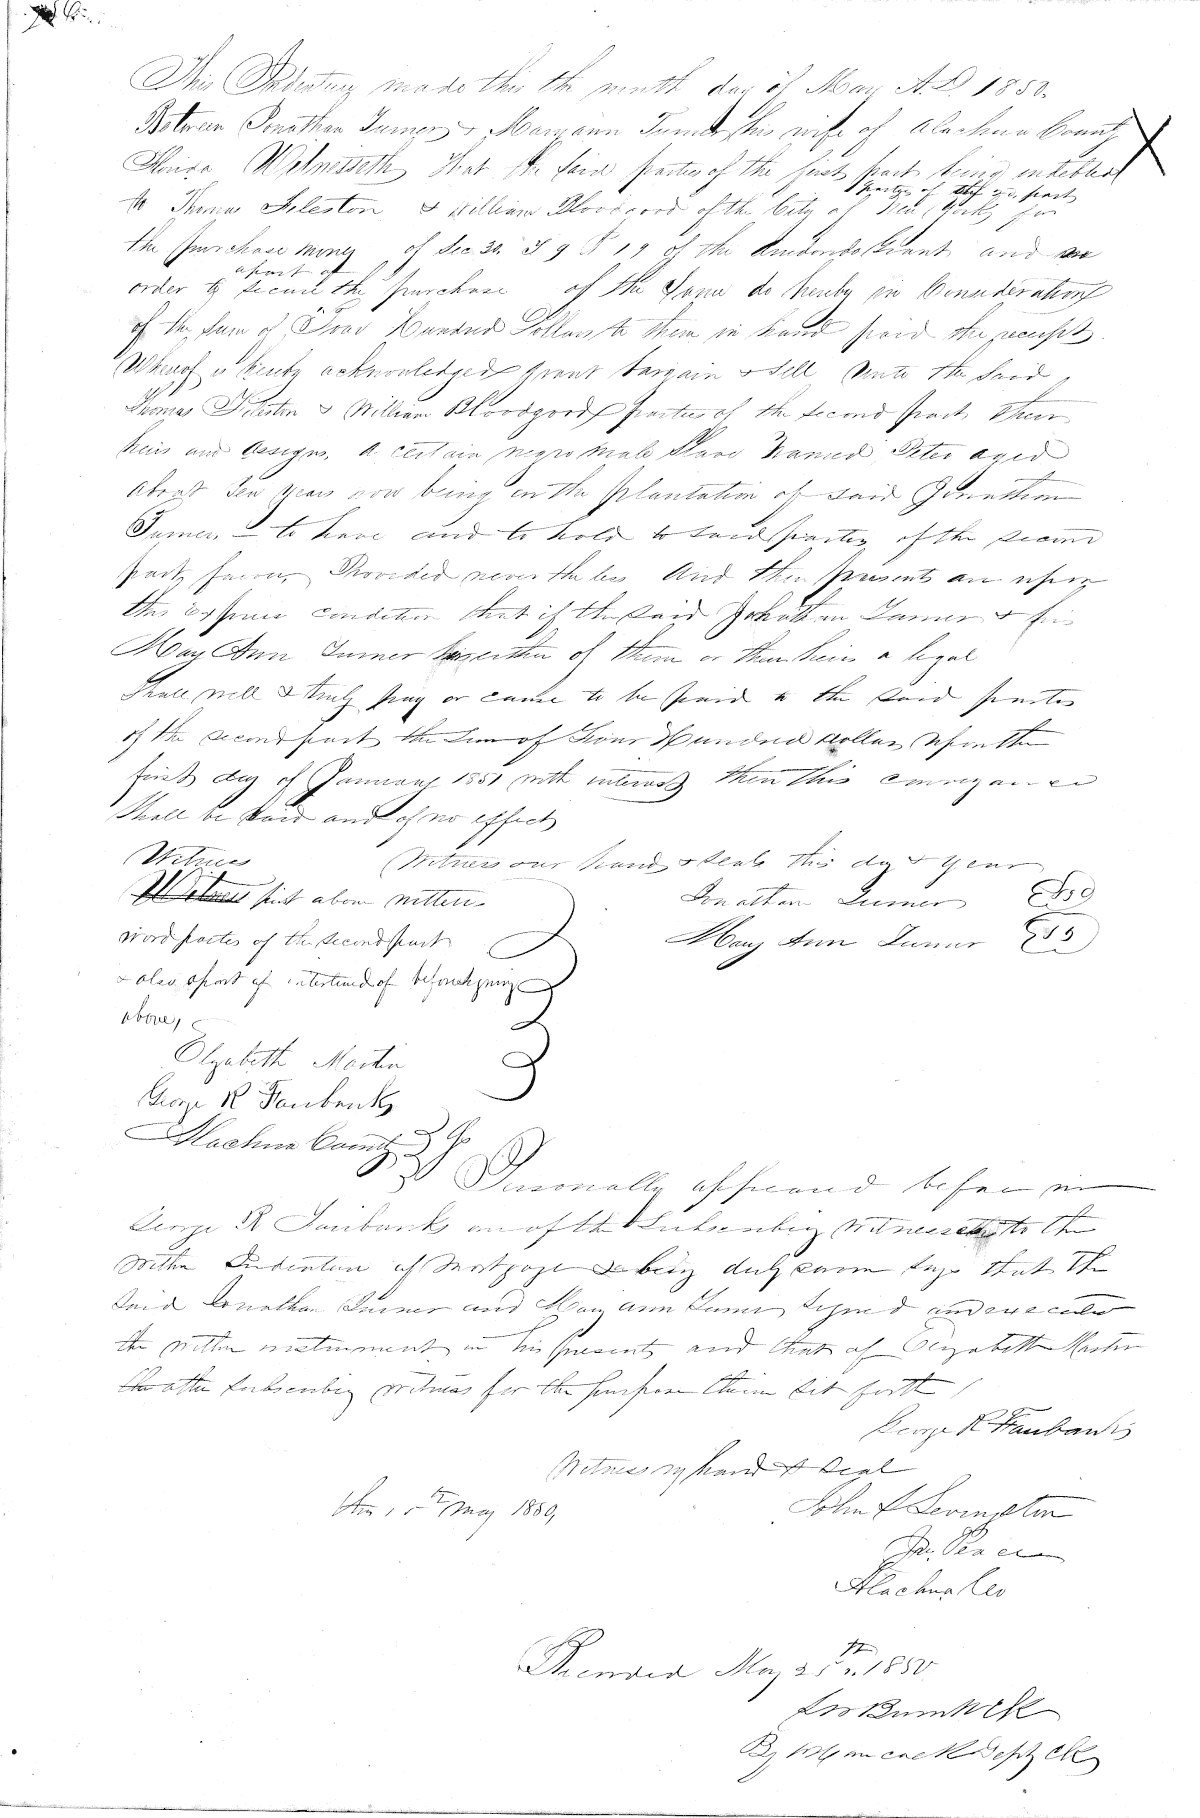 This Indenture made this the ninth day of May A.D. 1850.
Between Jonathan Turner & Mary ann Turner his wife of Alachua County
Florida Witnesseth That the Said parties of the first part being indebted
parties of the 2d part
to Thomas Fileston & William Bloodgood of the City of New York for
the purchase money of Sec 30. T 9 R 19 of the Arredondo Grant and
a part of
order to secure the purchase of the Same do hereby in Consideration
of the Sum of Four Hundred Dollars to them in hand paid the receipt
Whereof is hereby acknowledged grant bargain & sell unto the Said
Thomas Fileston & William Bloodgood parties of the second part Their
heirs and assigns, a certain negro male Slave Named Peter aged
about Ten years now being on the plantation of said Jonathan
Turner — to have and to hold to said parties of the second
part forever, Provided nevertheless And these presents are upon
this express condition that if the said Johathan Turner &
Mary Ann Turner or either of them or their heirs a legal
Shall well & truly pay or cause to be paid to the said parties
of the second part the Sum of Four Hundred dollars upon the
first day of January 1851 with interest then this conveyance
Shall be void and of no effect
Witness Witness our hands & seals this day & year
Witness first above written Jonathan Turner
word parties of the second part Mary Ann Turner
& also apart of interlined before signing
above,
Elyabeth Martin
George R Fairbanks
Alachua County
Personally appeared before me
George R Fairbanks one of the Subscribing Witnesses to the
within Indenture of Mortgage & being duly sworn says that the
Said Jonathan Turner and Mary ann Turner Signed and executed
the within instrument in his presents and that of Elyzabeth Martin
the other Subscribing witness for the purpose therein Set forth
George R Fairbanks
Witness my hand & seal
May 1850, John L Levingston
Alachua Co
Recorded May 25th 1850